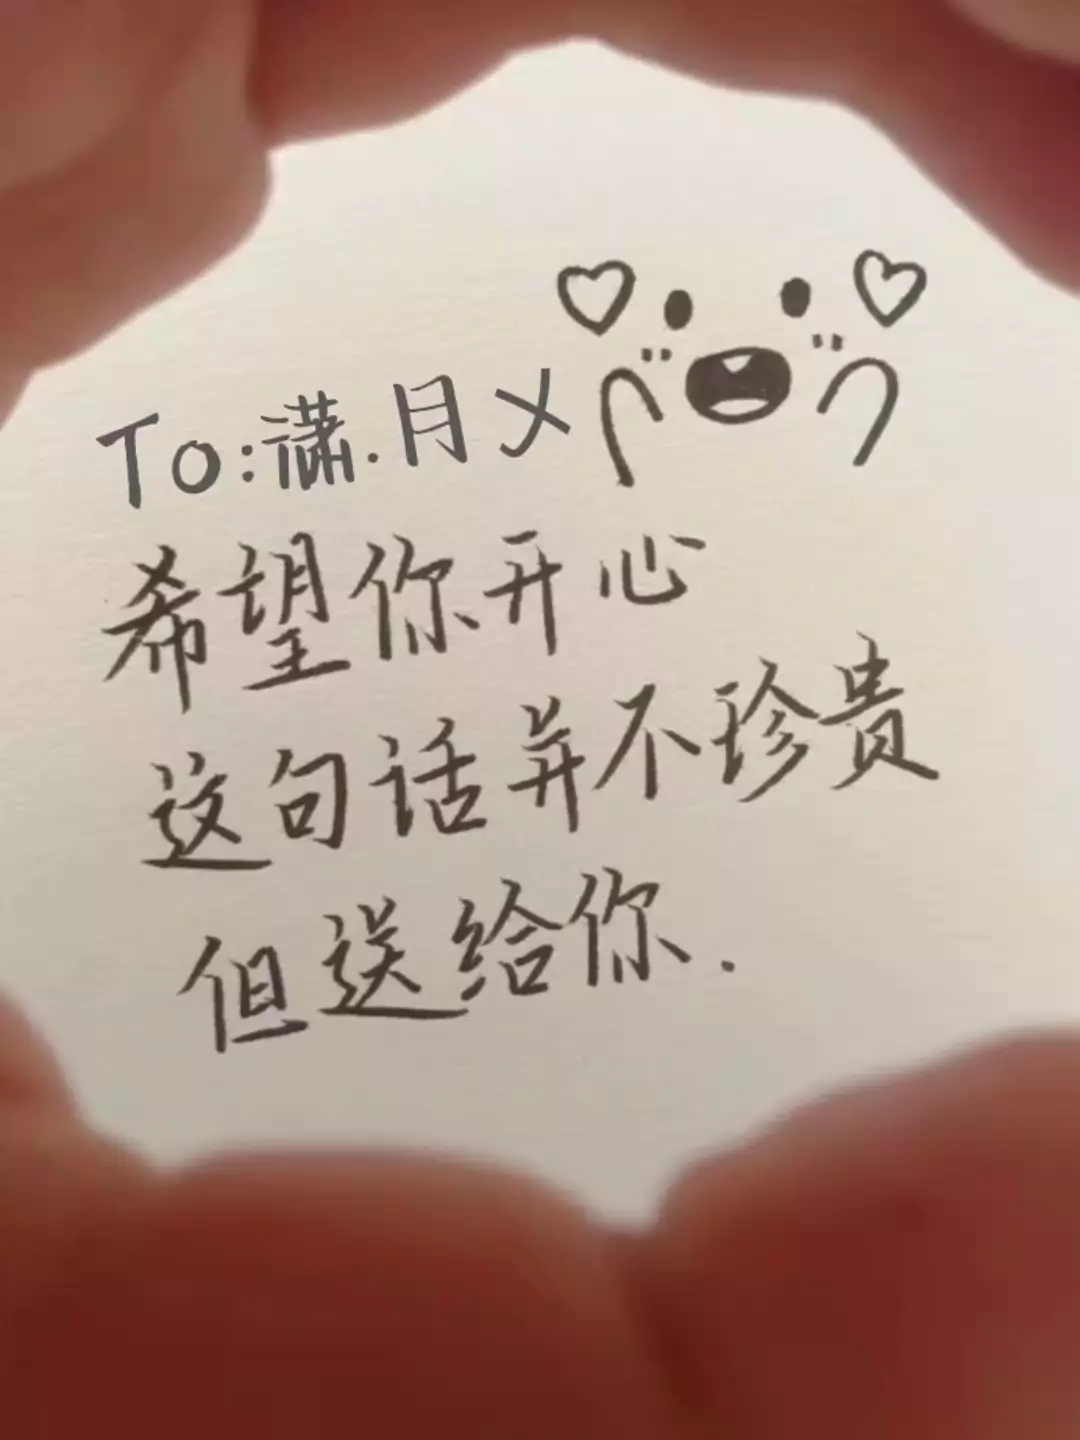 To:潇.月乂
希望你开心
这句话并不珍贵
但送给你.